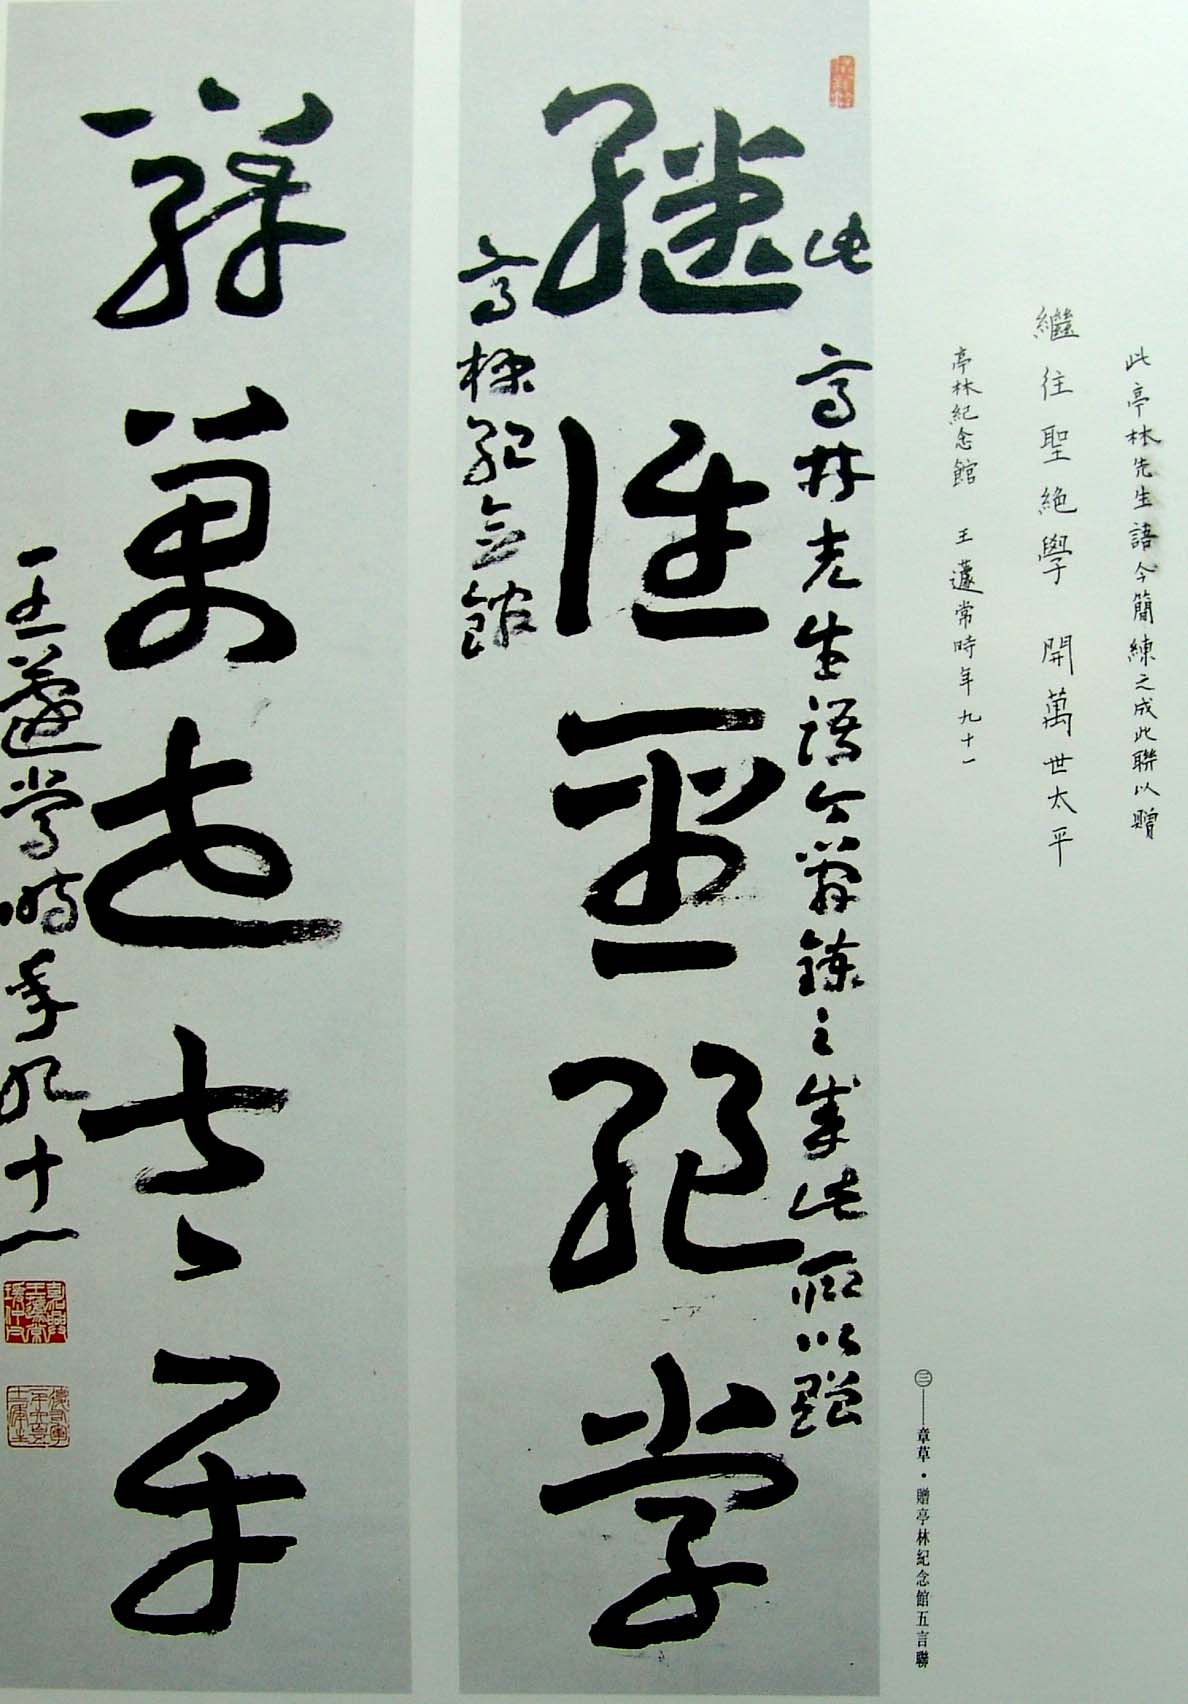 此亭林先生語今簡練之成此聯以贈
繼往聖絕學 開萬世太平
亭林紀念館 王蘧常時年九十一
㊂——章草·贈亭林紀念館五言聯
此亭林先生語今簡練之成此聯以贈
繼往聖絕學
亭林紀念館
開萬世太平
王蘧常時年九十一